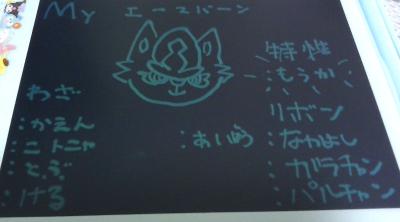 My エースバーン
特性
:もうか
わざ
:かえん
:ニトニャ
:とぶ
:ける
:あいめう
リボン
:なかよし
:ガラチャン
:パルチャン